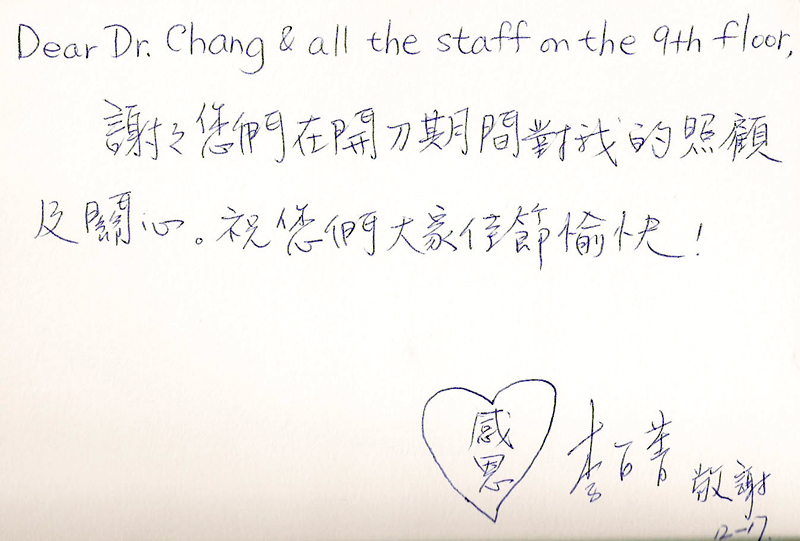 Dear Dr. Chang & all the staff on the 9th floor,
謝々您們在開刀期間對我的照顧
及關心。祝您們大家佳節愉快！
感
恩
李百菁
敬謝
12-17